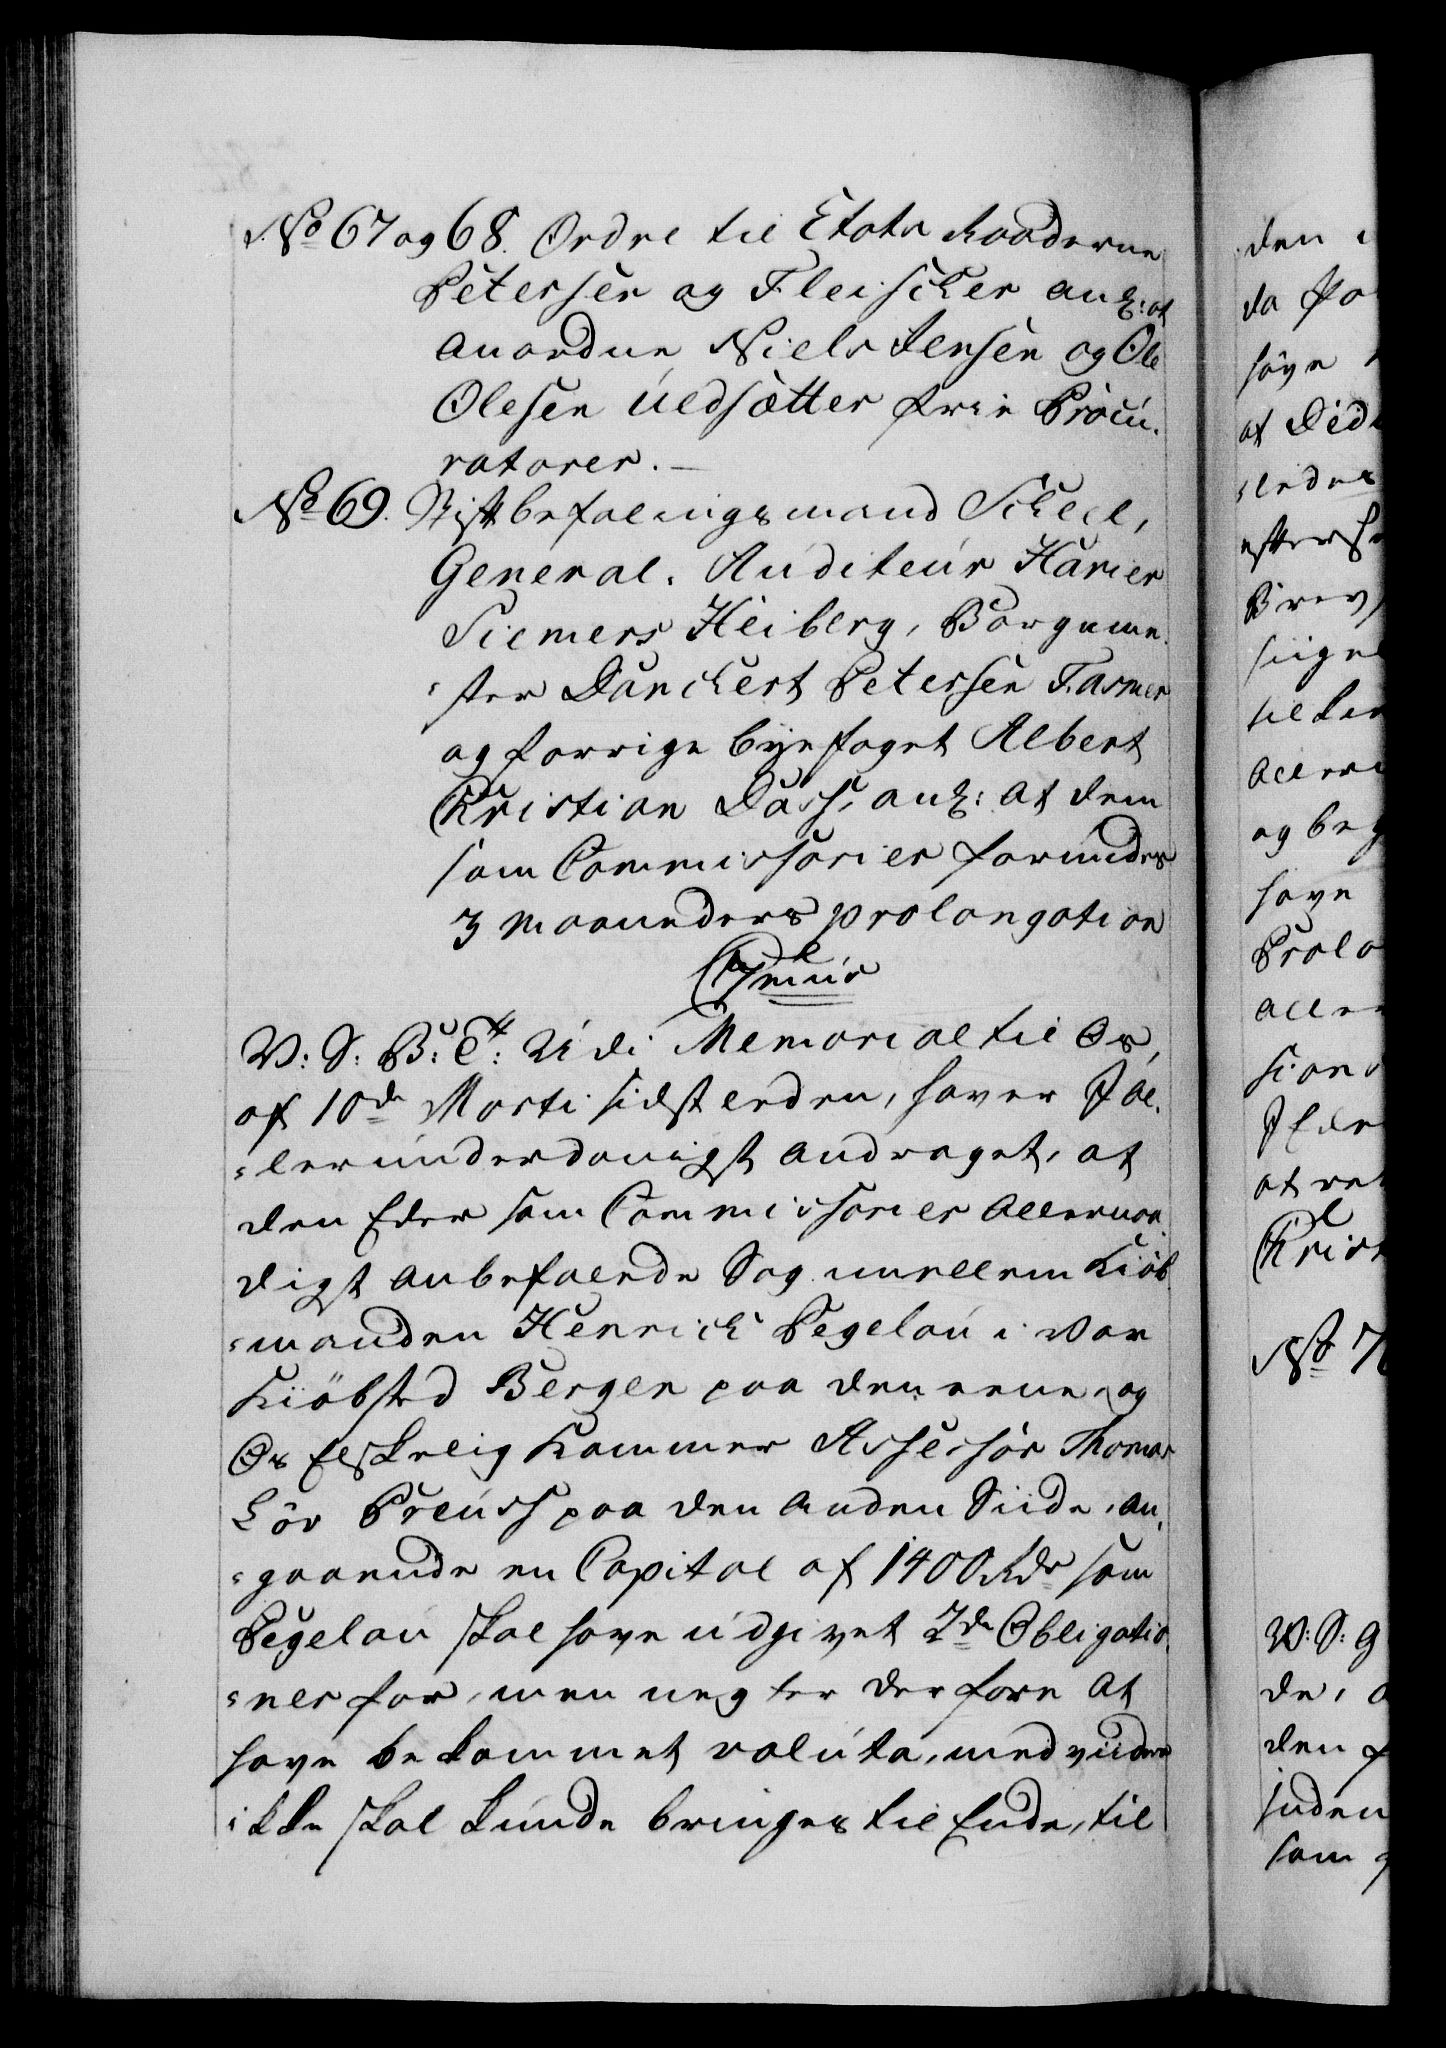 No 67 og 68. Ordre til Etats Raaderne
Petersen og Fleischer ank: at
anordne Niels Jensen og Ole
Olesen Uldsætter frie Procu-
ratorer.
No 69. Stiftbefalingsmand Scheel,
General-Auditeur
Siemers Heiberg, Borgeme-
ster Danckert Petersen Fasmer
og forrige byefoget Albert
Christian Dass, ank: at dem
som Commissarier forundes
3 maaneders prolongation
C 7mus
V: S: B: Udi Memorial til Os,
af 10de Marti sidstleden, haver I al-
lerunderdanigst andraget, at
den Eder som Commissarier allernaa-
digst anbefalende Sag imellem Kiöb-
manden Henrich Segelau i vor
Kiöbsted Bergen paa den eene, og
Os Elskelig Kammer Assessor Thomas
Lör Preuss paa den anden Siide, an-
gaaende en Capital af 1400 Rdr som
Segelau skal have udgivet 2de Obligatio-
ner for, men negter derfore at
have bekommet valuta, med videre
ikke skal kunde bringes til Ende, til
den
da
have
at
Brev
og
have
Prolo
at
Chris
No 7
V: S:
de,
den
inden
som